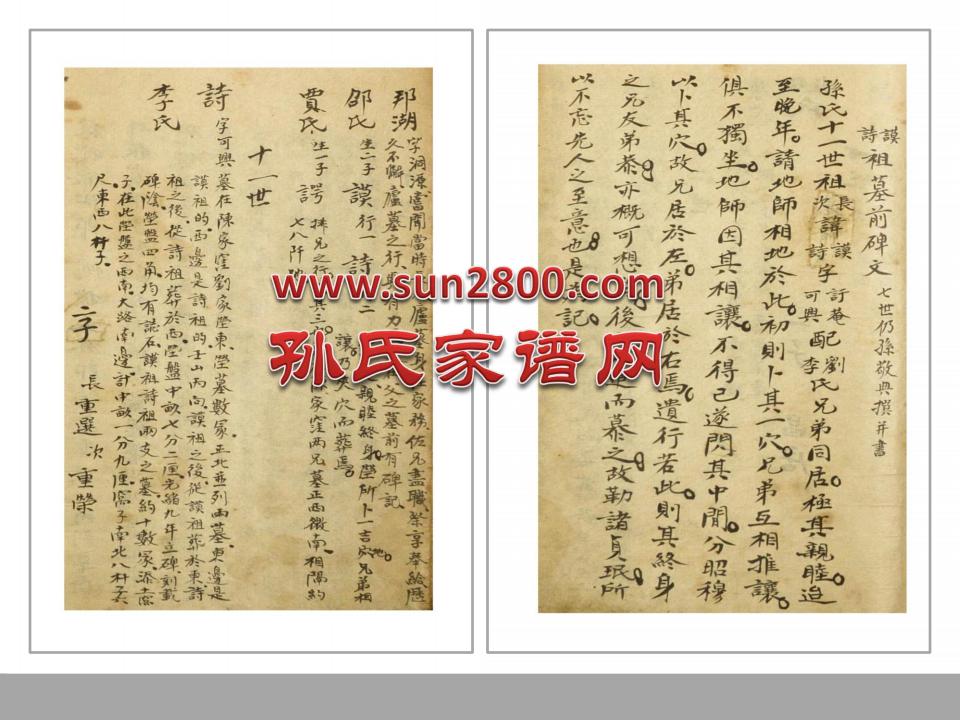 謨詩祖墓前碑文 七世仍孫敬典撰并書
孫氏十一世祖長諱謨字訂菴配劉氏兄弟同居極其親睦迨
次詩可興李
至晚年請地師相地於此初則卜其一穴兄弟互相推讓
俱不獨坐地師因其相讓不得已遂閃其中間分昭穆
以卜其穴故兄居於左弟居於右焉遺行若此則其終身
之兄友弟恭亦概可想後而慕之故勒諸貞珉所
以不忘先人之至意也是記
www.sun2800.com
孙氏家谱网
邦湖 字洞源嘗聞當時廬墓身家務佐兄盡職祭享奉給歷
久不懈廬墓之行有力父之墓前有碑記
邵氏 生二子 謨行一 詩二親睦終身塋所卜一吉地兄弟相
讓乃夾穴而葬焉
賈氏 生一子 諤 抹兄之行其三家窪两兄墓正西微南相隔約
七八阡
十一世
詩 字可興墓在陳家窪劉家塋東塋墓數冢正北並列两墓東邊是
謨祖的西邊是詩祖的壬山丙向謨祖之後從謨祖葬於東詩
祖之後從詩祖葬於西塋盤中畝七分二厘光緒九年立碑刻載
李氏 碑陰塋盤四角均有誌石謨祖詩祖兩支之墓約十數冢
子在此塋盤之西南大路南邊計中畝一分九厘窩子南北八杆
尺東西八杆子
二子 長重選 次重榮